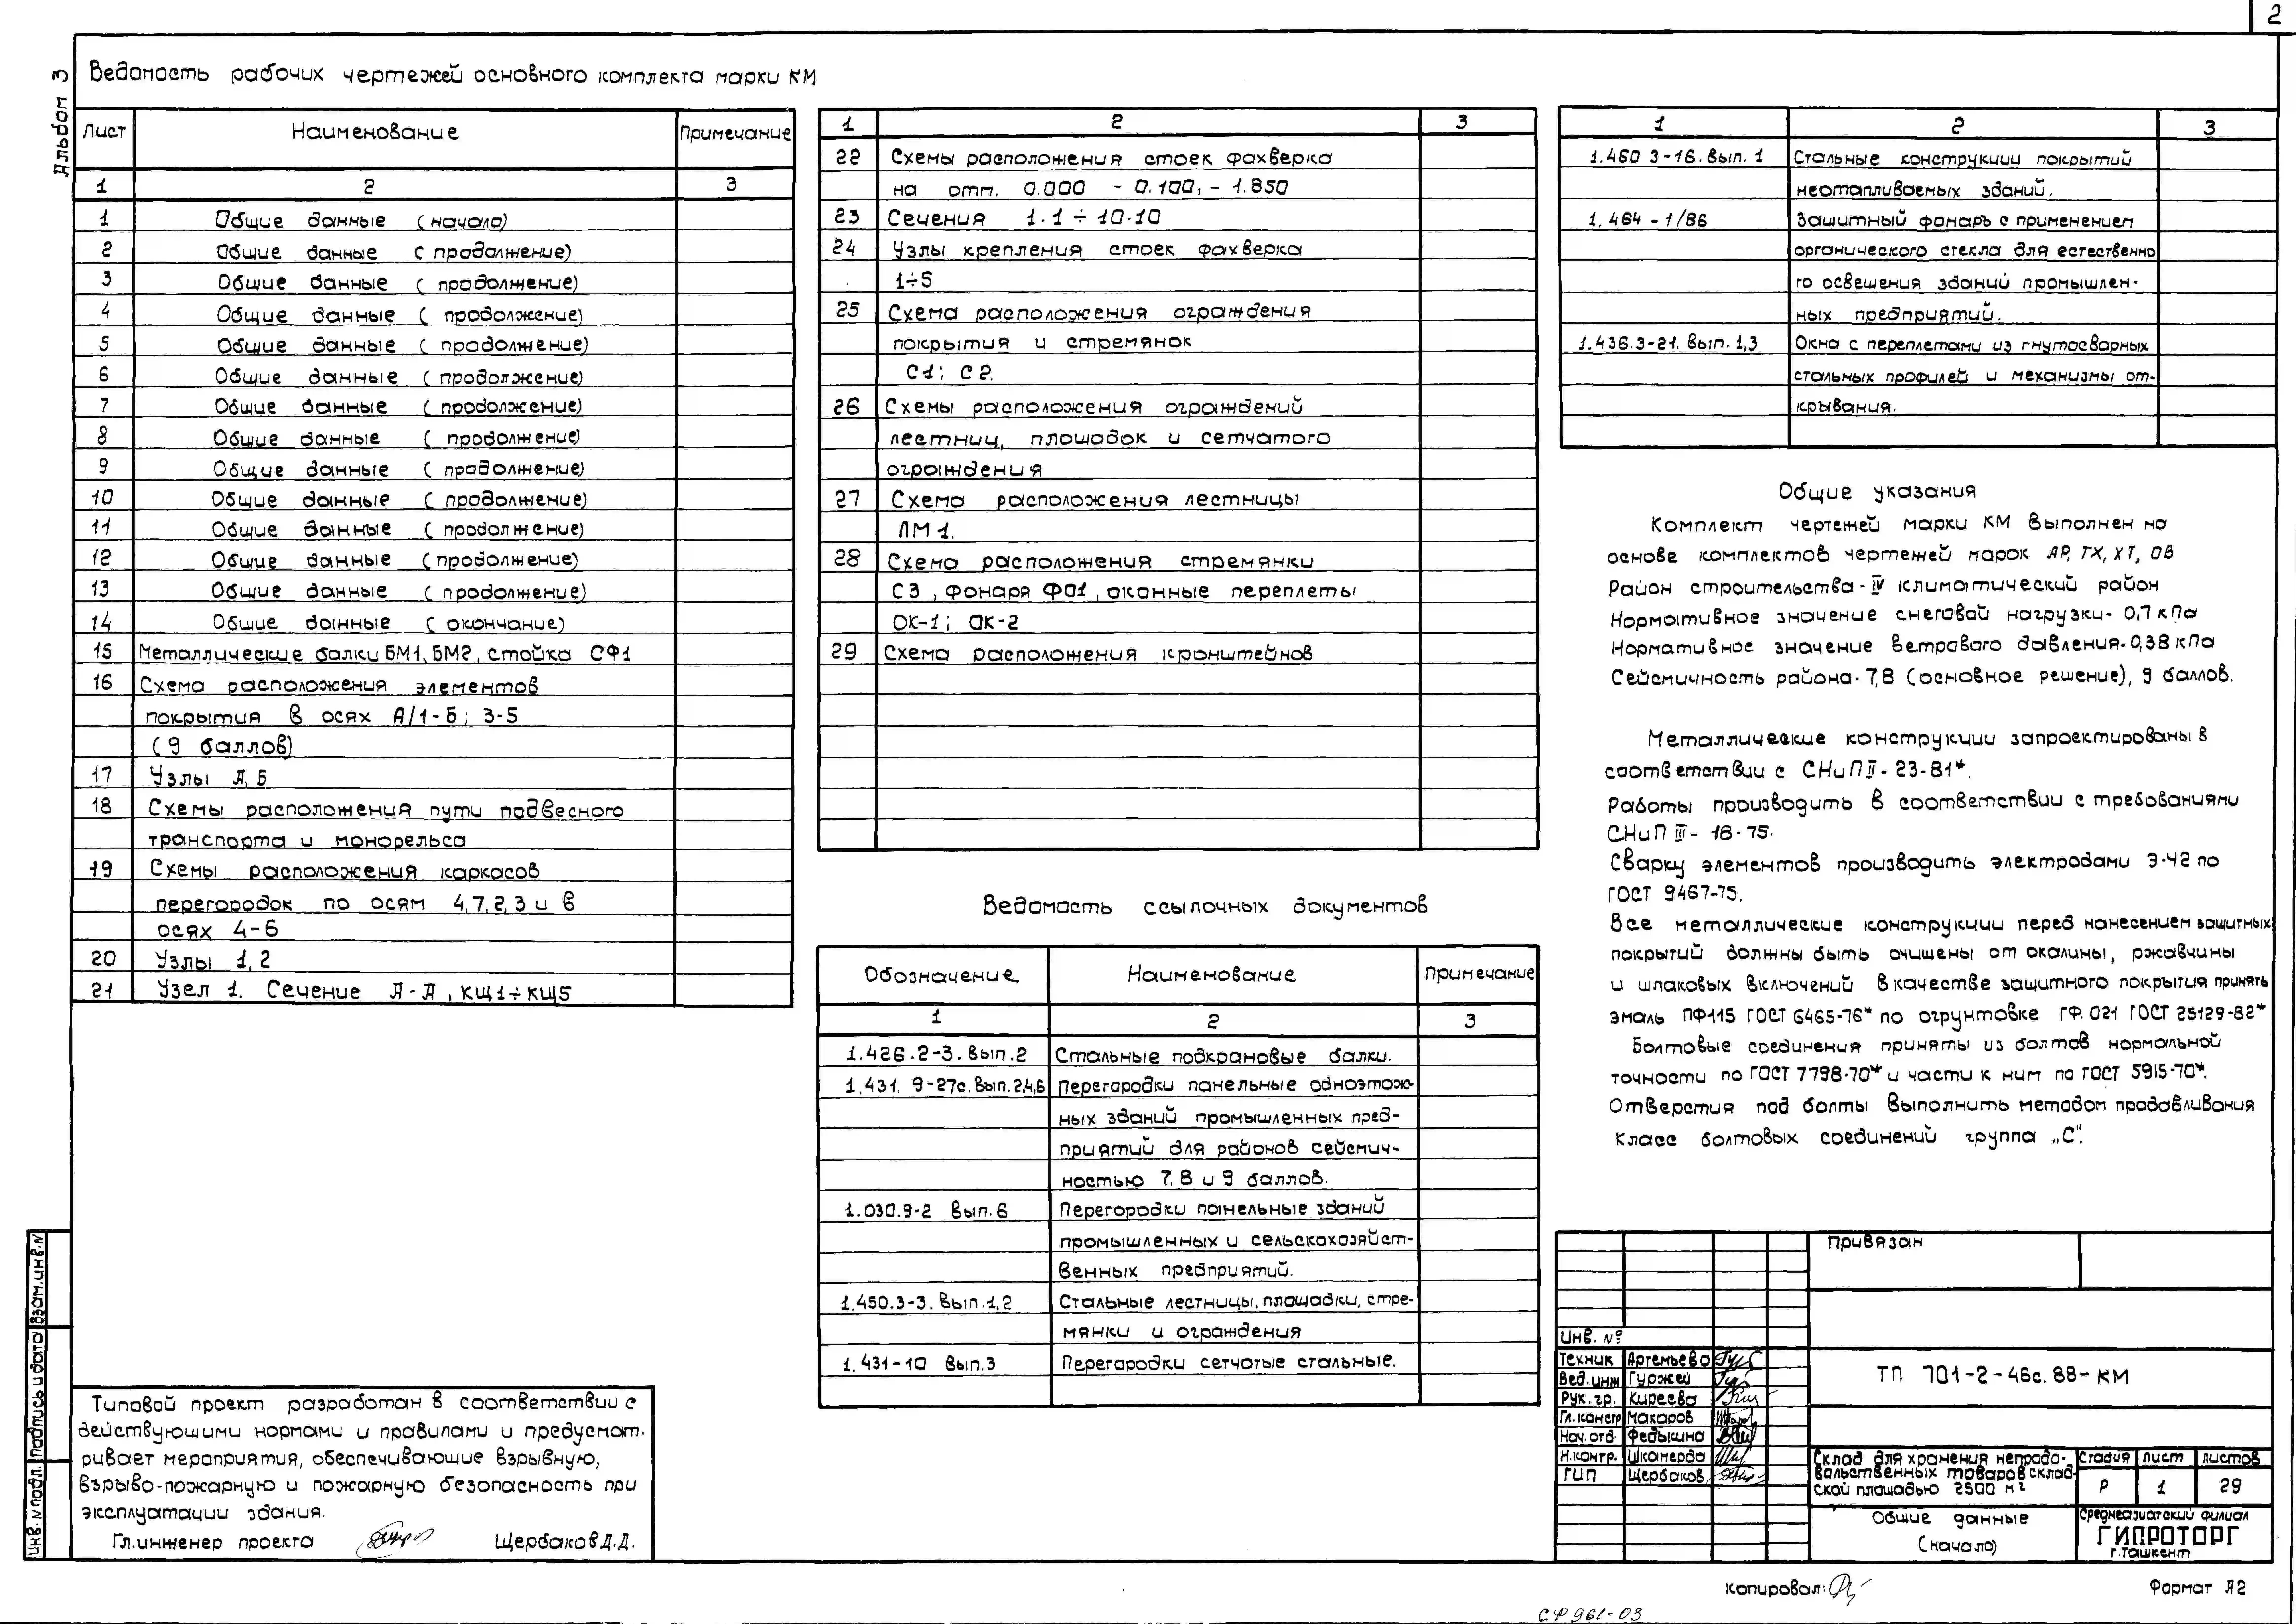 2
Альбом 3
Ведомость рабочих чертежей основного комплекта марки КМ
Лист Наименование Примечание
1 2 3
1 Общие данные (начало)
2 Общие данные (продолжение)
3 Общие данные (продолжение)
4 Общие данные (продолжение)
5 Общие данные (продолжение)
6 Общие данные (продолжение)
7 Общие данные (продолжение)
8 Общие данные (продолжение)
9 Общие данные (продолжение)
10 Общие данные (продолжение)
11 Общие данные (продолжение)
12 Общие данные (продолжение)
13 Общие данные (продолжение)
14 Общие данные (окончание)
15 Металлические балки БМ1, БМ2, стойка СФ1
16 Схема расположения элементов
покрытия в осях А/1-Б; 3-5
(9 баллов)
17 Узлы А, Б
18 Схемы расположения пути подвесного
транспорта и монорельса
19 Схемы расположения каркасов
перегородок по осям 4,7,2,3 и в
осях 4-6
20 Узлы 1,2
21 Узел 1. Сечение А-А, КЩ1÷КЩ5
1 2 3
22 Схемы расположения стоек фахверка
на отм. 0.000 -0.100, -1.850
23 Сечения 1-1÷10-10
24 Узлы крепления стоек фахверка
1÷5
25 Схема расположения ограждения
покрытия и стремянок
С1; С2.
26 Схемы расположения ограждений
лестниц, площадок и сетчатого
ограждения
27 Схема расположения лестницы
ЛМ1.
28 Схема расположения стремянки
С3, фонаря Ф01, оконные переплеты
ОК-1; ОК-2
29 Схема расположения кронштейнов
Ведомость ссылочных документов
Обозначение Наименование Примечание
1 2 3
1.426.2-3. Вып.2 Стальные подкрановые балки.
1.431.9-27с. Вып.2,4,6 Перегородки панельные одноэтаж-
ных зданий промышленных пред-
приятий для районов сейсмич-
ностью 7,8 и 9 баллов.
1.030.9-2 Вып.6 Перегородки панельные зданий
промышленных и сельскохозяйст-
венных предприятий.
1.450.3-3. Вып.1,2 Стальные лестницы, площадки, стре-
мянки и ограждения
1.431-10 Вып.3 Перегородки сетчатые стальные.
1 2 3
1.460 3-16. Вып. 1 Стальные конструкции покрытий
неотапливаемых зданий.
1.464-1/86 Защитный фонарь с применением
органического стекла для естественно
го освещения зданий промышлен-
ных предприятий.
1.436.3-21. Вып. 1,3 Окна с переплетами из гнутосварных
стальных профилей и механизмы от-
крывания.
Общие указания
Комплект чертежей марки КМ выполнен на
основе комплектов чертежей марок АР, ТХ, ХТ, ОВ
Район строительства - IV климатический район
Нормативное значение снеговой нагрузки - 0,7 кПа
Нормативное значение ветрового давления - 0,38 кПа
Сейсмичность района - 7,8 (основное решение), 9 баллов.
Металлические конструкции запроектированы в
соответствии с СНиП II-23-81*.
Работы производить в соответствии с требованиями
СНиП III-18-75.
Сварку элементов производить электродами Э-42 по
ГОСТ 9467-75.
Все металлические конструкции перед нанесением защитных
покрытий должны быть очищены от окалины, ржавчины
и шлаковых включений В качестве защитного покрытия принять
эмаль ПФ115 ГОСТ 6465-76* по огрунтовке ГФ.021 ГОСТ 25129-82*
Болтовые соединения приняты из болтов нормальной
точности по ГОСТ 7798-70* и части к ним по ГОСТ 5915-70*.
Отверстия под болты выполнить методом продавливания
Класс болтовых соединений группа „С".
Типовой проект разработан в соответствии с
действующими нормами и правилами и предусмат-
ривает мероприятия, обеспечивающие взрывную,
взрыво-пожарную и пожарную безопасность при
эксплуатации здания.
Гл.инженер проекта Щербаков Д.Д.
Взам.инв.N
Подпись и дата
Инв.N подл.
Привязан
Инв. №
Техник Артемьева
Вед.инж Гуржей
Рук.гр. Киреева
Гл.констр Макаров
Нач.отд. Федькина
Н.контр. Шкамерда
ГИП Щербаков
ТП 701-2-46с.88-КМ
Склад для хранения непродо-
вольственных товаров склад-
ской площадью 2500 м²
Стадия Лист Листов
Р 1 29
Общие данные
(начало)
Среднеазиатский филиал
ГИПРОТОРГ
г.Ташкент
Копировал:
Формат А2
СФ 961-03